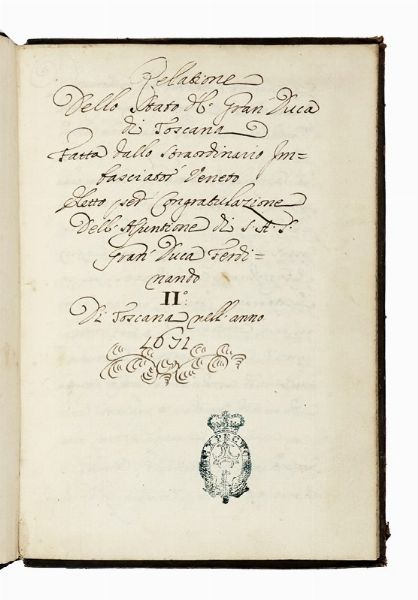 Relatione
Dello Stato del Gran Duca
di Toscana
Fatta dallo Straordinario Im=
basciator Veneto
eletto per Congratulazione
Dell'Assuntione di S. A. S.
Gran Duca Ferdi=
nando
II°:
Di Toscana nell'anno
1671